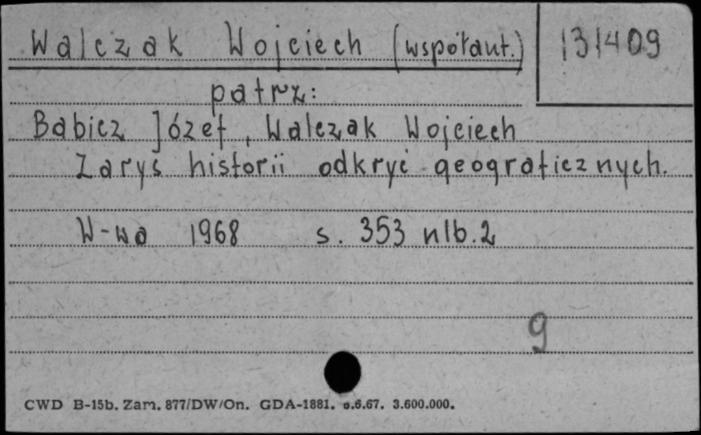 Walczak Wojciech (współaut.) 131409
patrz:
Babicz Józef, Walczak Wojciech
Zarys historii odkryć geograficznych.
W-wa 1968 s. 353 nlb. 2
9
CWD B-15b. Zam. 877/DW/On. GDA-1881. 6.6.67. 3.600.000.